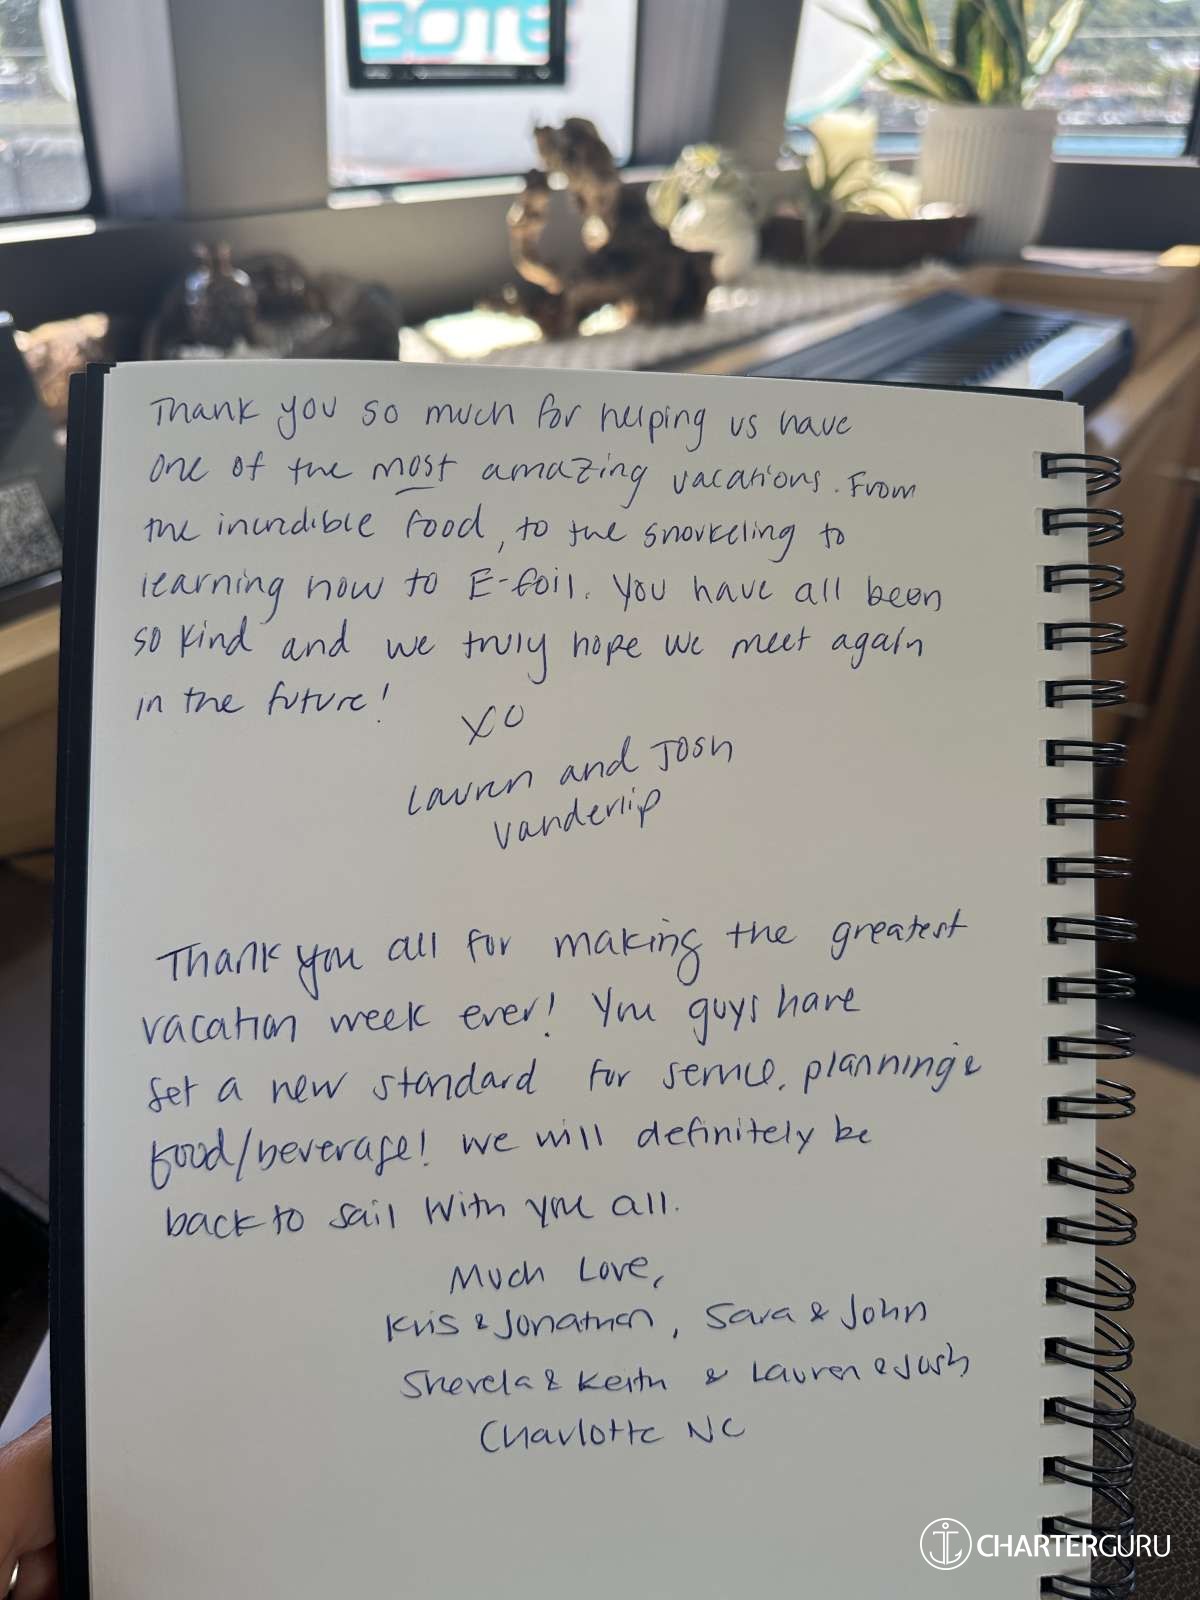 BOTE
Thank you so much for helping us have
one of the most amazing vacations. From
the incredible food, to the snorkeling to
learning how to E-foil. You have all been
so kind and we truly hope we meet again
in the future!
XO
Lauren and Josh
Vanderlip
Thank you all for making the greatest
vacation week ever! You guys have
set a new standard for service, planning &
food/beverage! We will definitely be
back to sail with you all.
Much Love,
Kris & Jonathan, Sara & John
Sherela & Keith & Lauren & Josh
Charlotte NC
CHARTERGURU